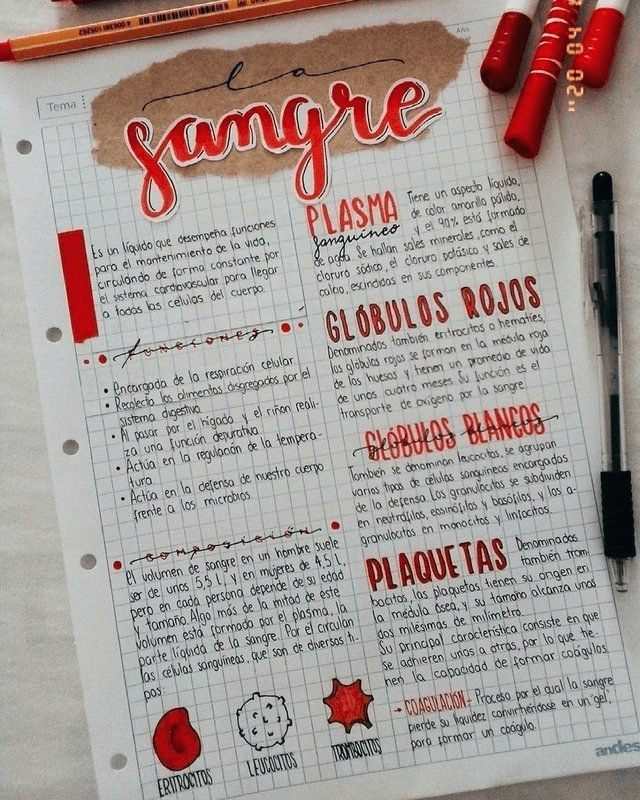 Tema
Año
la
sangre
Es un líquido que desempeña funciones
para el mantenimiento de la vida,
circulándo de forma constante por
el sistema cardiovascular para llegar
a todas las células del cuerpo.
funciones
• Encargada de la respiración celular
• Recolecta los alimentos disgregados por el
sistema digestivo
• Al pasar por el hígado y el riñon reali-
za una función depurativa
• Actúa en la regulación de la tempera-
tura.
• Actúa en la defensa de nuestro cuerpo
frente a los microbios.
composición
El volumen de sangre en un hombre suele
ser de unos 5,5 L, y en mujeres de 4,5 L,
pero en cada persona depende de su edad
y tamaño. Algo más de la mitad de este
volumen está formado por el plasma, la
parte líquida de la sangre. Por el circulan
las células sanguíneas, que son de diversos ti-
pos:
ERITROCITOS
LEUCOCITOS
TROMBOCITOS
PLASMA
sanguíneo
Tiene un aspecto líquido,
de color amarillo pálido,
y el 90% está formado
de agua. Se hallan sales minerales, como el
cloruro sódico, el cloruro potásico y sales de
calcio, escindidas en sus componentes.
GLÓBULOS ROJOS
Denominados también eritrocitos o hematíes,
los glóbulos rojos se forman en la médula roja
de los huesos y tienen un promedio de vida
de unos cuatro meses. Su función es el
transporte de oxígeno por la sangre.
GLÓBULOS BLANCOS
glóbulos blancos
También se denominan leucocitos, se agrupan
varios tipos de células sanguíneas encargadas
de la defensa. Los granulocitos se subdividen
en neutrófilos, eosinófilos y basófilos, y los a-
granulocitos en monocitos y linfocitos.
PLAQUETAS
Denominadas
también trom
bocitos, las plaquetas tienen su origen en
la médula ósea, y su tamaño alcanza unos
dos milésimas de milímetro.
Su principal característica consiste en que
se adhieren unas a otras, por lo que tie-
nen la capacidad de formar coágulos.
→ COAGULACIÓN: Proceso por el cual la sangre
pierde su líquidez convirtiéndose en un gel,
para formar un coágulo.
andes